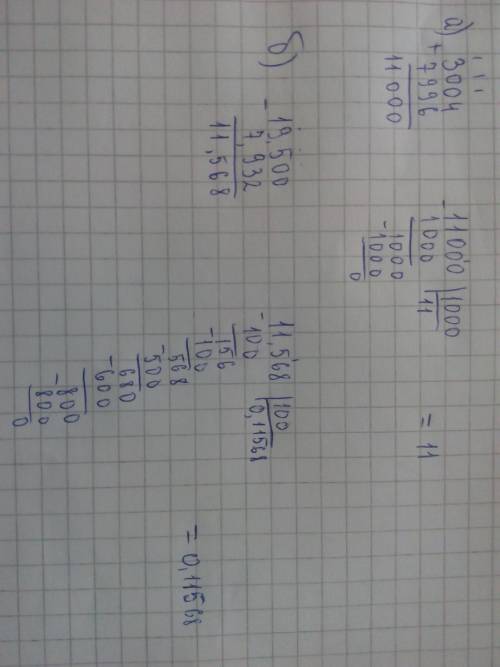 а) + 3004
7996
11000
- 11000 | 1000
1000 | 11
- 1000
1000
0
= 11
б) - 19,500
7,932
11,568
11,568 | 100
- 100 | 0,11568
156
- 100
568
- 500
680
- 600
- 800
800
0
= 0,11568